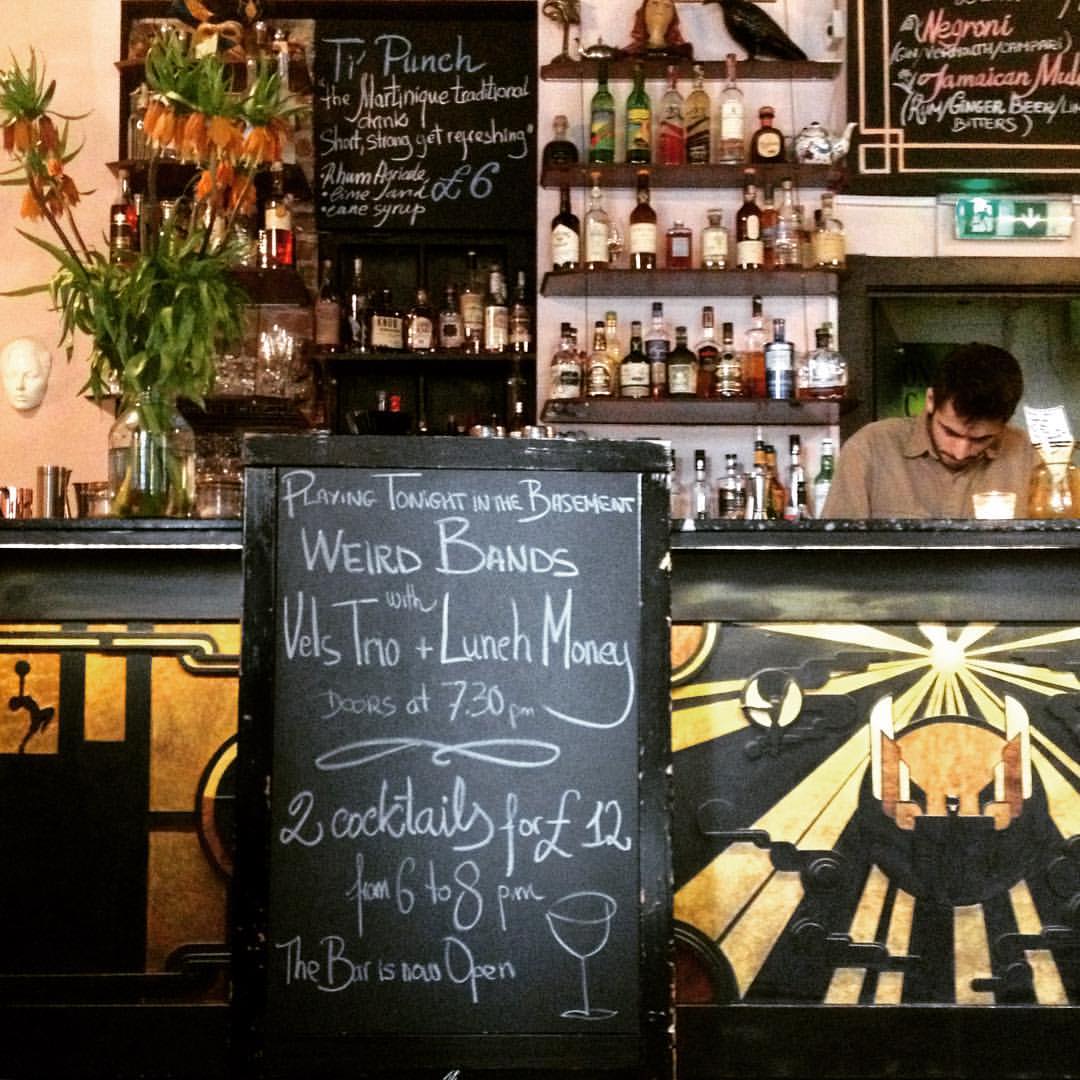 Ti' Punch
"the Martinique traditional
drink
Short, strong, yet refreshing"
Rhum Agricole
• lime and
• cane syrup
£6
Negroni
(Gin/Vermouth/Campari)
Jamaican Mul
(Rum/Ginger Beer/Lim
Bitters)
Playing Tonight in the Basement
Weird Bands
with
Vels Trio + Lunch Money
Doors at 7.30 pm
2 cocktails for £12
from 6 to 8 p.m
The Bar is now Open